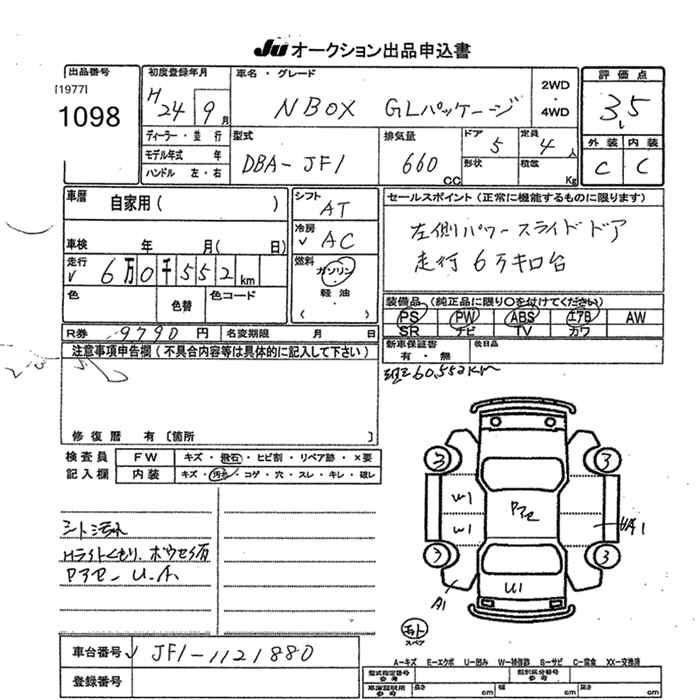 Ju オークション出品申込書
出品番号
[1977]
1098
初度登録年月
H 24 9月
車名・グレード
NBOX GLパッケージ
2WD
・
4WD
評価点
3,5
外装 内装
C C
ディーラー・並行
モデル年式 年
ハンドル 左・右
型式
DBA-JF1
排気量
660 CC
ドア
5
形状
定員
4人
積載
Kg
車歴
自家用( )
車検 年 月( 日)
走行
6万0千552km
色
色替
色コード
シフト
AT
冷房
AC
燃料
ガソリン
・
軽油
・
( )
セールスポイント(正常に機能するものに限ります)
左側パワースライドドア
走行6万キロ台
装備品(純正品に限り〇を付けてください)
PS PW ABS エアB AW
SR ナビ TV カワ
新車保証書
有・無
後日品
R券 9790円 名変期限 月 日
注意事項申告欄(不具合内容等は具体的に記入して下さい)
修復歴 有〔箇所 〕
現 60,552km
検査員
記入欄
FW キズ・飛石・ヒビ割・リペア跡・×要
内装 キズ・汚れ・コゲ・穴・スレ・キレ・破レ
シート汚れ
Hライトくもり、ボウセイ有
Pアセ- U.A
3 3
U1
U1
Pアセ
UA1
3 3
A1
U1
スペア
車台番号 JF1-1121880
登録番号
A-キズ E-エクボ U-凹み W-補修跡 S-サビ C-腐食 XX-交換済
型式指定番号
参考
類別区分番号
参考
車庫証明用
参考
長さ cm 幅 cm 高さ cm